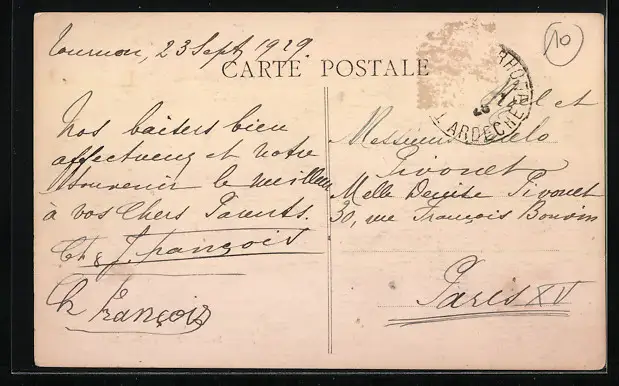 Tournon, 23 Sept 1929.
CARTE POSTALE
10
ARDECHE
Nos baisers bien
affectueux et notre
souvenir le meilleur
à vos chers Parents.
Ch & J. François
Ch François
et
Messieurs
Pivonet
Melle Denise Pivonet
30, rue François Bonvin
Paris XV